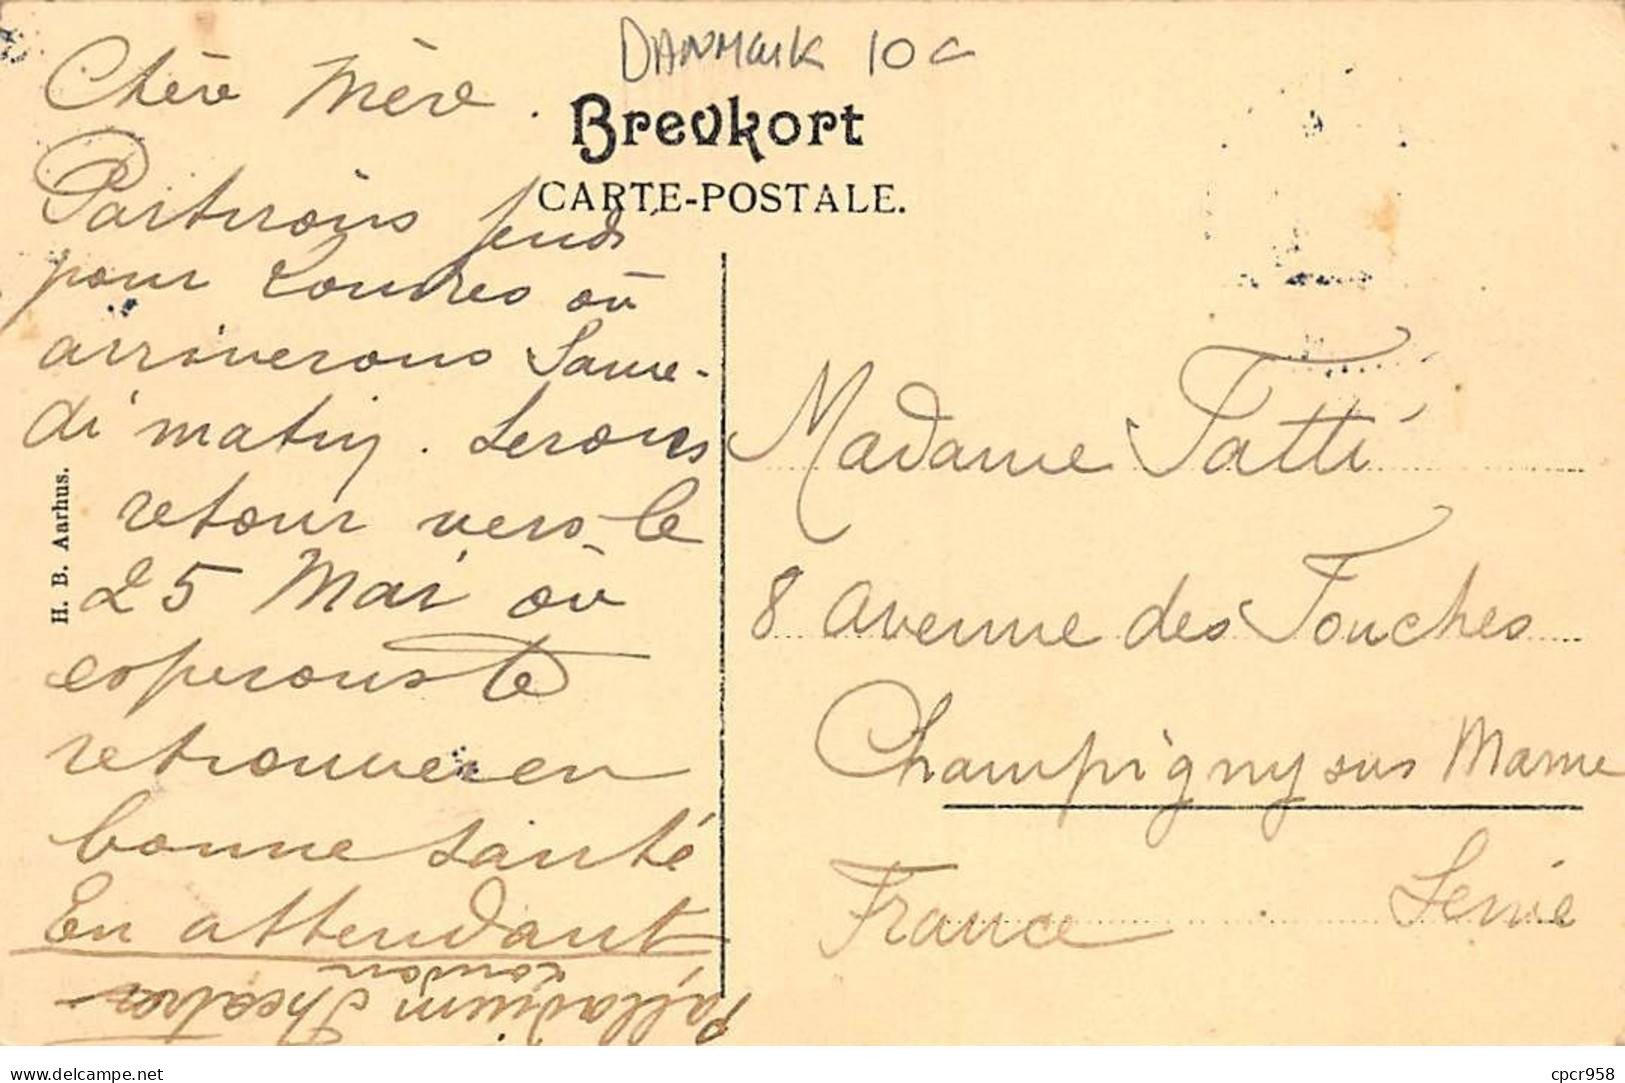 DANMark 10 c
Brevkort
CARTE-POSTALE.
Chère Mère.
Partirons Jeudi
pour Londres où
arriverons Same-
di matin. Serons
retour vers le
25 Mai où
esperons te
retrouver en
bonne santé
En attendant
Palladium Theatre
London
H. B. Aarhus.
Madame Tatti
8 avenue des Fouches
Champigny sur Marne
France Seine
www.delcampe.net
cpcr958